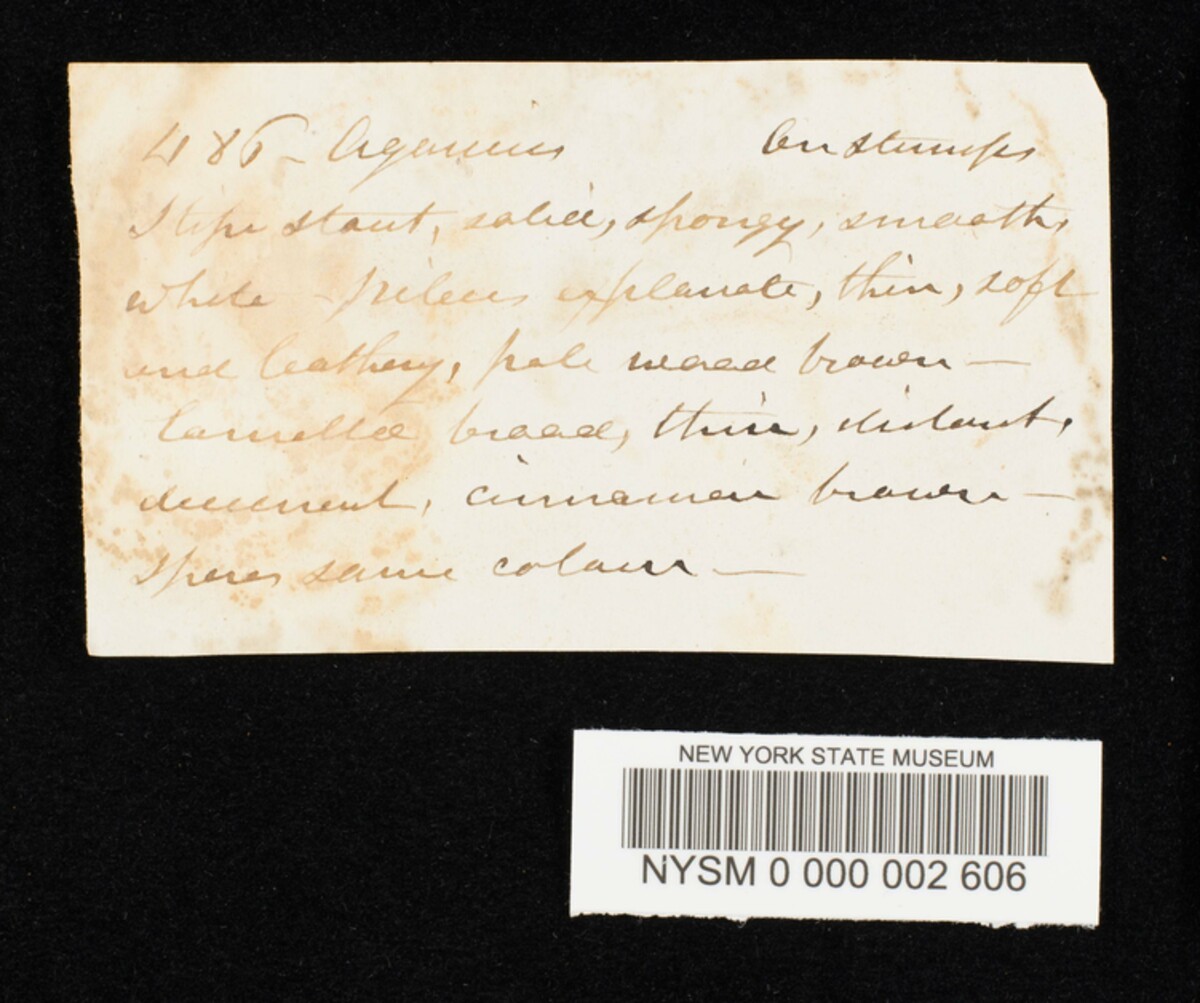 486 - Agaricus On stumps
Stipe stout, solid, spongy, smooth,
white - pileus explanate, thin, soft
and leathery, pale wood brown —
lamellae broad, thin, distant,
decurrent, cinnamon brown —
spores same colour —
NEW YORK STATE MUSEUM
NYSM 0 000 002 606